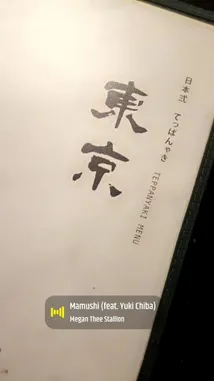 東京
日本弐 てっぱんやき
TEPPANYAKI MENU
Mamushi (feat. Yuki Chiba)
Megan Thee Stallion